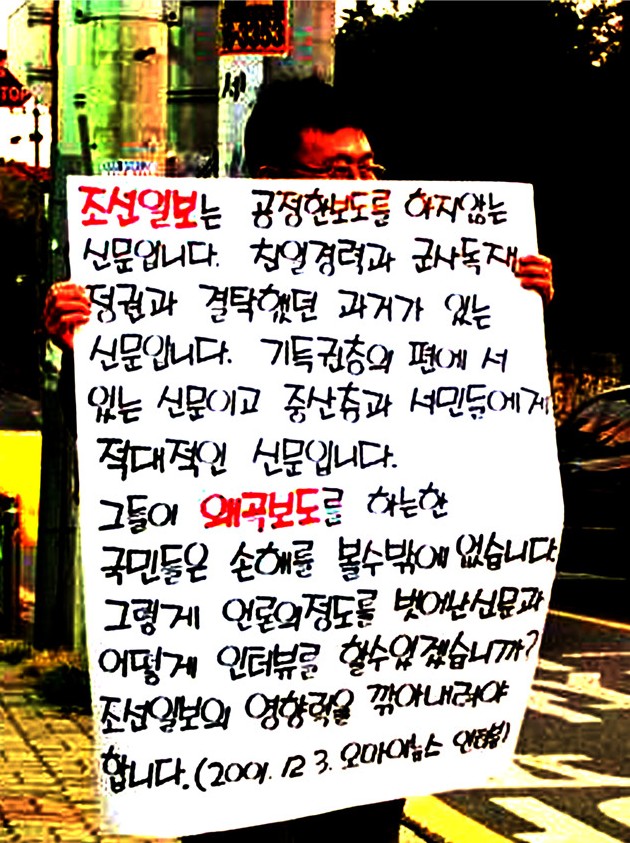 STOP
세
조선일보는 공정한보도를 하지않는
신문입니다. 친일경력과 군사독재
정권과 결탁했던 과거가 있는
신문입니다. 기득권층의 편에 서
있는 신문이고 중산층과 서민들에게
적대적인 신문입니다.
그들이 왜곡보도를 하는한
국민들은 손해를 볼수밖에 없습니다.
그렇게 언론의정도를 벗어난신문과
어떻게 인터뷰를 할수있겠습니까?
조선일보의 영향력을 깎아내려야
합니다.(2001. 12 3. 오마이뉴스 인터뷰)